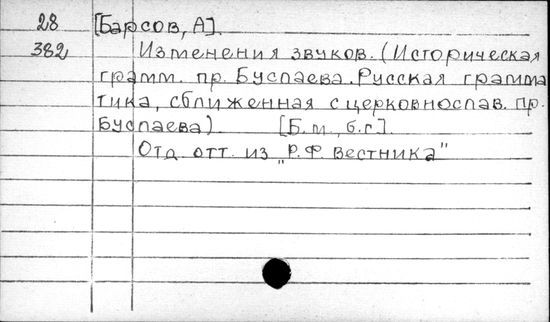 28 [Барсов, А].
382 Изменения звуков. (Историческая
грамм. пр. Буслаева. Русская грамма
тика, сближенная с церковнослав. пр.
Буслаева) [Б.м., б.г.].
Отд. отт. из "Р.Ф. Вестника"